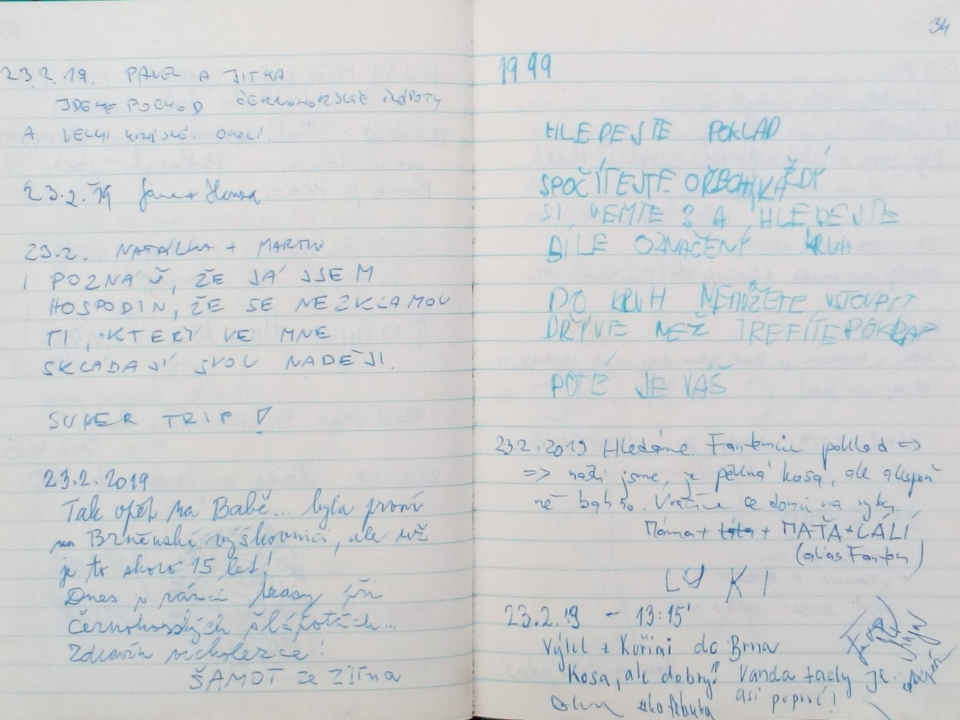 23.2.19. PAVEL A JITKA
JDEME POCHOD ČERNOHORSKÉ ŠLÁPOTY
A
23.2.19 Jana + Honza
23.2. NATÁLKA + MARTIN
I POZNÁŠ, ŽE JÁ JSEM
HOSPODIN, ŽE SE NEZKLAMOU
TI, KTERÝ VE MNE
SKLÁDAJÍ SVOU NADĚJI.
SUPER TRIP!
23.2.2019
Tak opět na Babě... byla první
na Brněnské výškovnici, ale už
je to skoro 15 let!
Dnes v rámci trasy při
Černohorských šlápotách...
Zdravím vrcholezce!
ŠAMOT ze Zlína
34
1999
HLEDEJTE POKLAD
SPOČÍTEJTE KAŽDÝ
SI VEMTE 3 A HLEDEJTE
BÍLE OZNAČENÝ KRUH
DO KRUH NEMŮŽETE VSTOUPIT
DŘÍVE NEŽ TREFÍTE POKLAD
POTÉ JE VÁŠ
23.2.2019 Hledáme Fantomův poklad =>
=> našli jsme, je pěkná kosa, ale alespoň
né bahno. Vracíme se domů na
Máma + táta + MAŤA + LALI
(alias Fantom)
LUKI
23.2.19 - 13:15'
Výlet z Kuřimi do Brna
Kosa, ale dobrý! Vanda tady je
asi poprvé!